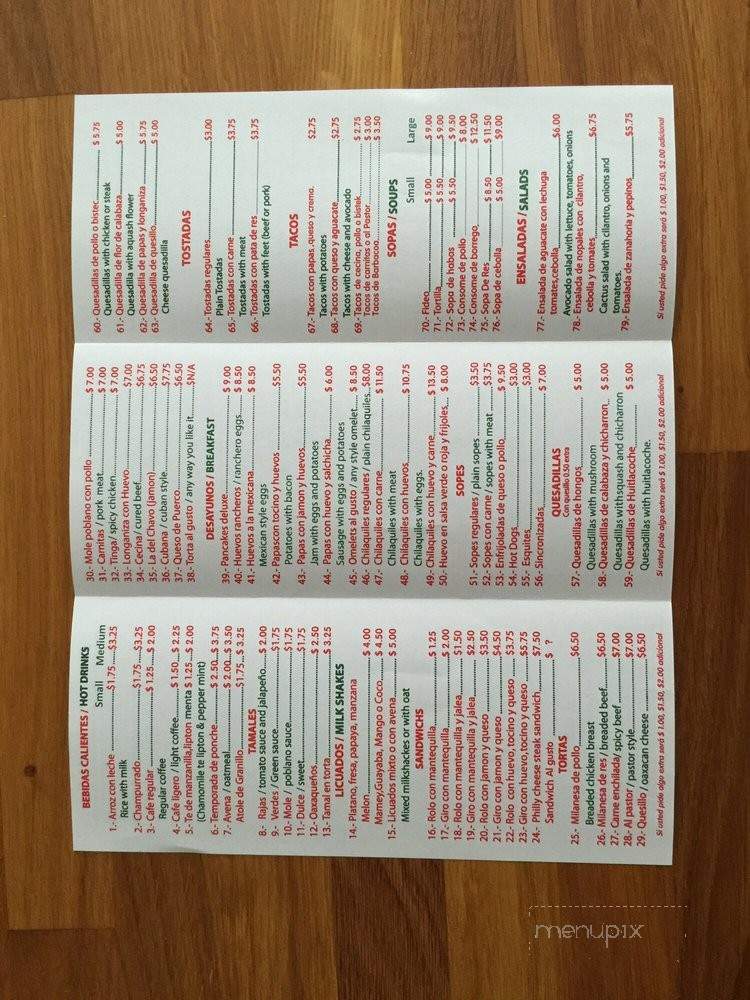 BEBIDAS CALIENTES / HOT DRINKS
Small Medium
1.- Arroz con leche $1.75 $3.25
Rice with milk
2.- Champurrado $1.75 $3.25
3.- Cafe regular $ 1.25 $ 2.00
Regular coffee
4.- Cafe ligero / light coffee $ 1.50 $ 2.25
5.- Te de manzanilla,lipton menta $ 1.25 $ 2.00
(Chamomile te lipton & pepper mint)
6.- Temporada de ponche $ 2.50 $ 3.75
7.- Avena / oatmeal $ 2.00 $ 3.50
Atole de Granillo $1.75 $ 3.25
TAMALES
8.- Rajas / tomato sauce and jalapeño $ 2.00
9.- Verdes / Green sauce $1.75
10.- Mole / poblano sauce $1.75
11.- Dulce / sweet $1.75
12.- Oaxaqueños $ 2.50
13.- Tamal en torta $ 3.25
LICUADOS / MILK SHAKES
14.- Platano, fresa, papaya, manzana
Melon $ 4.00
Mamey,Guayaba, Mango o Coco $ 4.50
15.- Licuados mixto o con avena $ 5.00
Mixed milkshackes or with oat
SANDWICHS
16.- Rolo con mantequilla $ 1.25
17.- Giro con mantequilla $ 2.00
18.- Rolo con mantequilla y jalea $1.50
19.- Giro con mantequilla y jalea $2.50
20.- Rolo con jamon y queso $3.50
21.- Giro con jamon y queso $4.50
22.- Rolo con huevo, tocino y queso $3.75
23.- Giro con huevo, tocino y queso $5.75
24.- Philly cheese steak sandwich $7.50
Sandwich Al gusto $ ?
TORTAS
25.- Milanesa de pollo $6.50
Breaded chicken breast
26.- Milanesa de res / breaded beef $6.50
27.- Carne enchilada/ spicy beef $7.00
28.- Al pastor / pastor style $7.00
29.- Quesillo / oaxacan cheese $6.50
Si usted pide algo extra será $ 1.00, $1.50, $2.00 adicional
30.- Mole poblano con pollo $ 7.00
31.- Carnitas / pork meat $ 7.00
32.- Tinga/ spicy chicken $ 7.00
33.- Longaniza con Huevo $7.00
34.- Cecina / cured beef $6.75
35.- La del Chavo (jamon) $6.50
36.- Cubana / cuban style $7.75
37.- Queso de Puerco $6.50
38.- Torta al gusto / any way you like it $N/A
DESAYUNOS / BREAKFAST
39.- Pancakes deluxe $ 9.00
40.- Huevos rancheros / ranchero eggs $ 8.50
41.- Huevos a la mexicana $ 8.50
Mexican style eggs
42.- Papascon tocino y huevos $5.50
Potatoes with bacon
43.- Papas con jamon y huevos $5.50
Jam with eggs and potatoes
44.- Papas con huevo y salchicha $ 6.00
Sausage with eggs and potatoes
45.- Omelets al gusto / any style omelet $ 8.50
46.- Chilaquiles regulares / plain chilaquiles $8.00
47.- Chilaquiles con carne $ 11.50
Chilaquiles with meat
48.- Chilaquiles con huevos $ 10.75
Chilaquiles with eggs.
49.- Chilaquiles con huevo y carne $ 13.50
50.- Huevo en salsa verde o roja y frijoles $ 8.00
SOPES
51.- Sopes regulares / plain sopes $3.50
52.- Sopes con carne / sopes with meat $3.75
53.- Enfrijoladas de queso o pollo $ 9.50
54.- Hot Dogs $3.00
55.- Esquites $3.00
56.- Sincronizadas $ 7.00
QUESADILLAS
Con quesillo 0.50 extra
57.- Quesadillas de hongos $ 5.00
Quesadillas with mushroom
58.- Quesadillas de calabaza y chicharron $ 5.00
Quesadillas withsquash and chicharron
59.- Quesadillas de Huitlacoche $ 5.00
Quesadillas with huitlacoche.
Si usted pide algo extra será $ 1.00, $1.50, $2.00 adicional
60.- Quesadillas de pollo o bistec $ 5.75
Quesadillas with chicken or steak
61.- Quesadilla de flor de calabaza $ 5.00
Quesadilla with aquash flower
62.- Quesadilla de papas y longaniza $ 5.75
63.- Quesadilla de quesillo $ 5.00
Cheese quesadilla
TOSTADAS
64.- Tostadas regulares $3.00
Plain Tostadas
65.- Tostadas con carne $3.75
Tostadas with meat
66.- Tostadas con pata de res $3.75
Tostadas with feet (beef or pork)
TACOS
67.- Tacos con papas ,queso y crema. $2.75
Tacos with potatoes
68.- Tacos con queso y aguacate $2.75
Tacos with cheese and avocado
69.- Tacos de cecina, pollo o bistek $ 2.75
Tacos de carnitas o al Pastor $ 3.00
Tacos de Barbacoa $ 3.50
SOPAS / SOUPS
Small Large
70.- Fideo $ 5.00 $ 9.00
71.- Tortilla $ 5.50 $ 9.00
72.- Sopa de habas $ 5.50 $ 9.50
73.- Consome de pollo $ 8.00
74.- Consome de borrego $ 12.50
75.- Sopa De Res $ 8.50 $ 11.50
76.- Sopa de cebolla $ 5.00 $9.00
ENSALADAS / SALADS
77.- Ensalada de aguacate con lechuga
tomates,cebolla $6.00
Avocado salad with lettuce, tomatoes, onions
78.- Ensalada de nopales con cilantro,
cebolla y tomates $6.75
Cactus salad with cilantro, onions and
tomatoes.
79.- Ensalada de zanahoria y pepinos $5.75
Si usted pide algo extra será $ 1.00, $1.50, $2.00 adicional
menupix